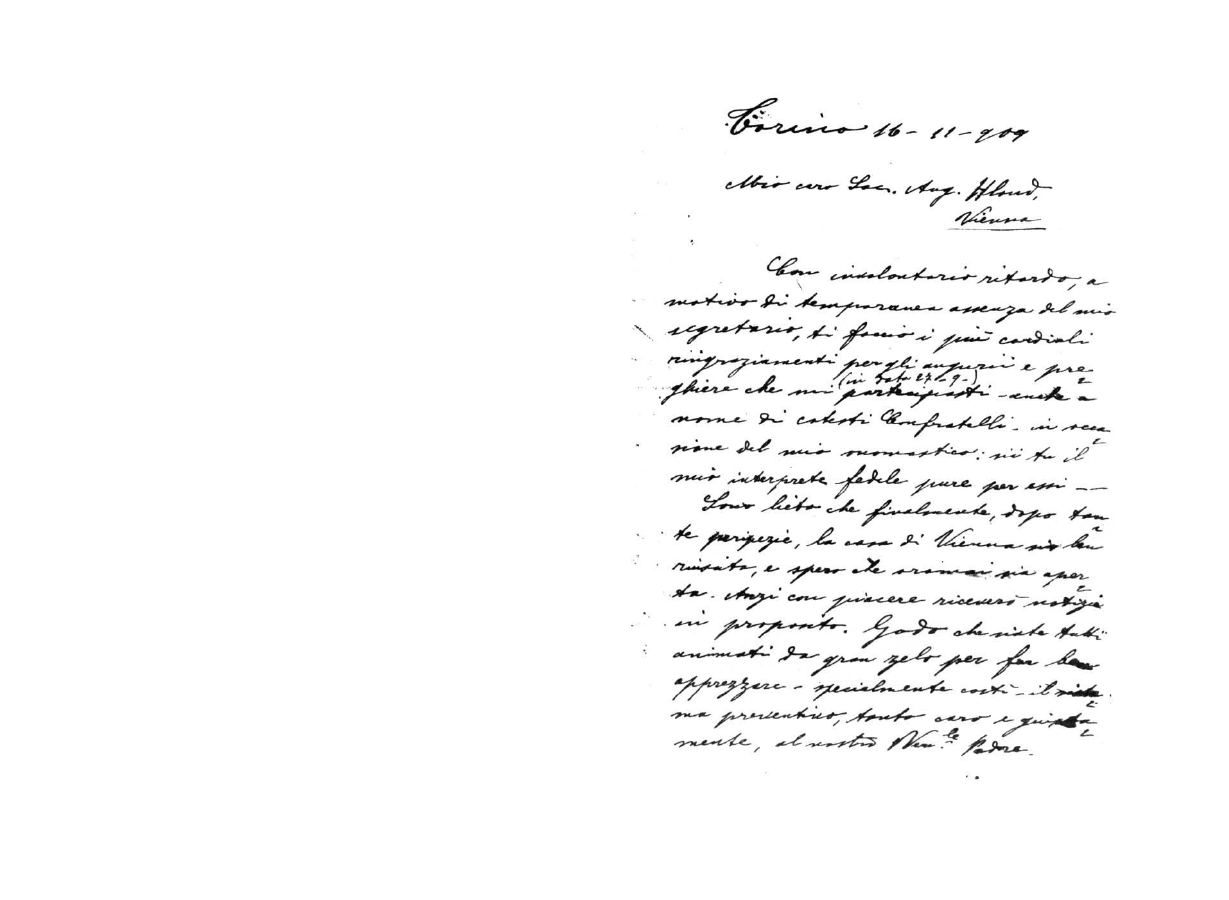 Torino 16-11-909
Mio caro Sac. Aug. Hlond,
Vienna
Con involontario ritardo, a
motivo di temporanea assenza del mio
segretario, ti faccio i più cordiali
ringraziamenti per gli augurii e pre=
(in data 27-9-)
ghiere che mi partecipasti - anche a
nome di cotesti Confratelli - in occa=
sione del mio onomastico: sii tu il
mio interprete fedele pure per essi —
Sono lieto che finalmente, dopo tan=
te peripezie, la casa di Vienna sia ben
riuscita, e spero che oramai sia aper=
ta. Anzi con piacere riceverò notizie
in proposito. Godo che siate tutti
animati da gran zelo per far ben
apprezzare - specialmente costì - il siste=
ma preventivo, tanto caro e giusta=
mente, al nostro Ven.le Padre.